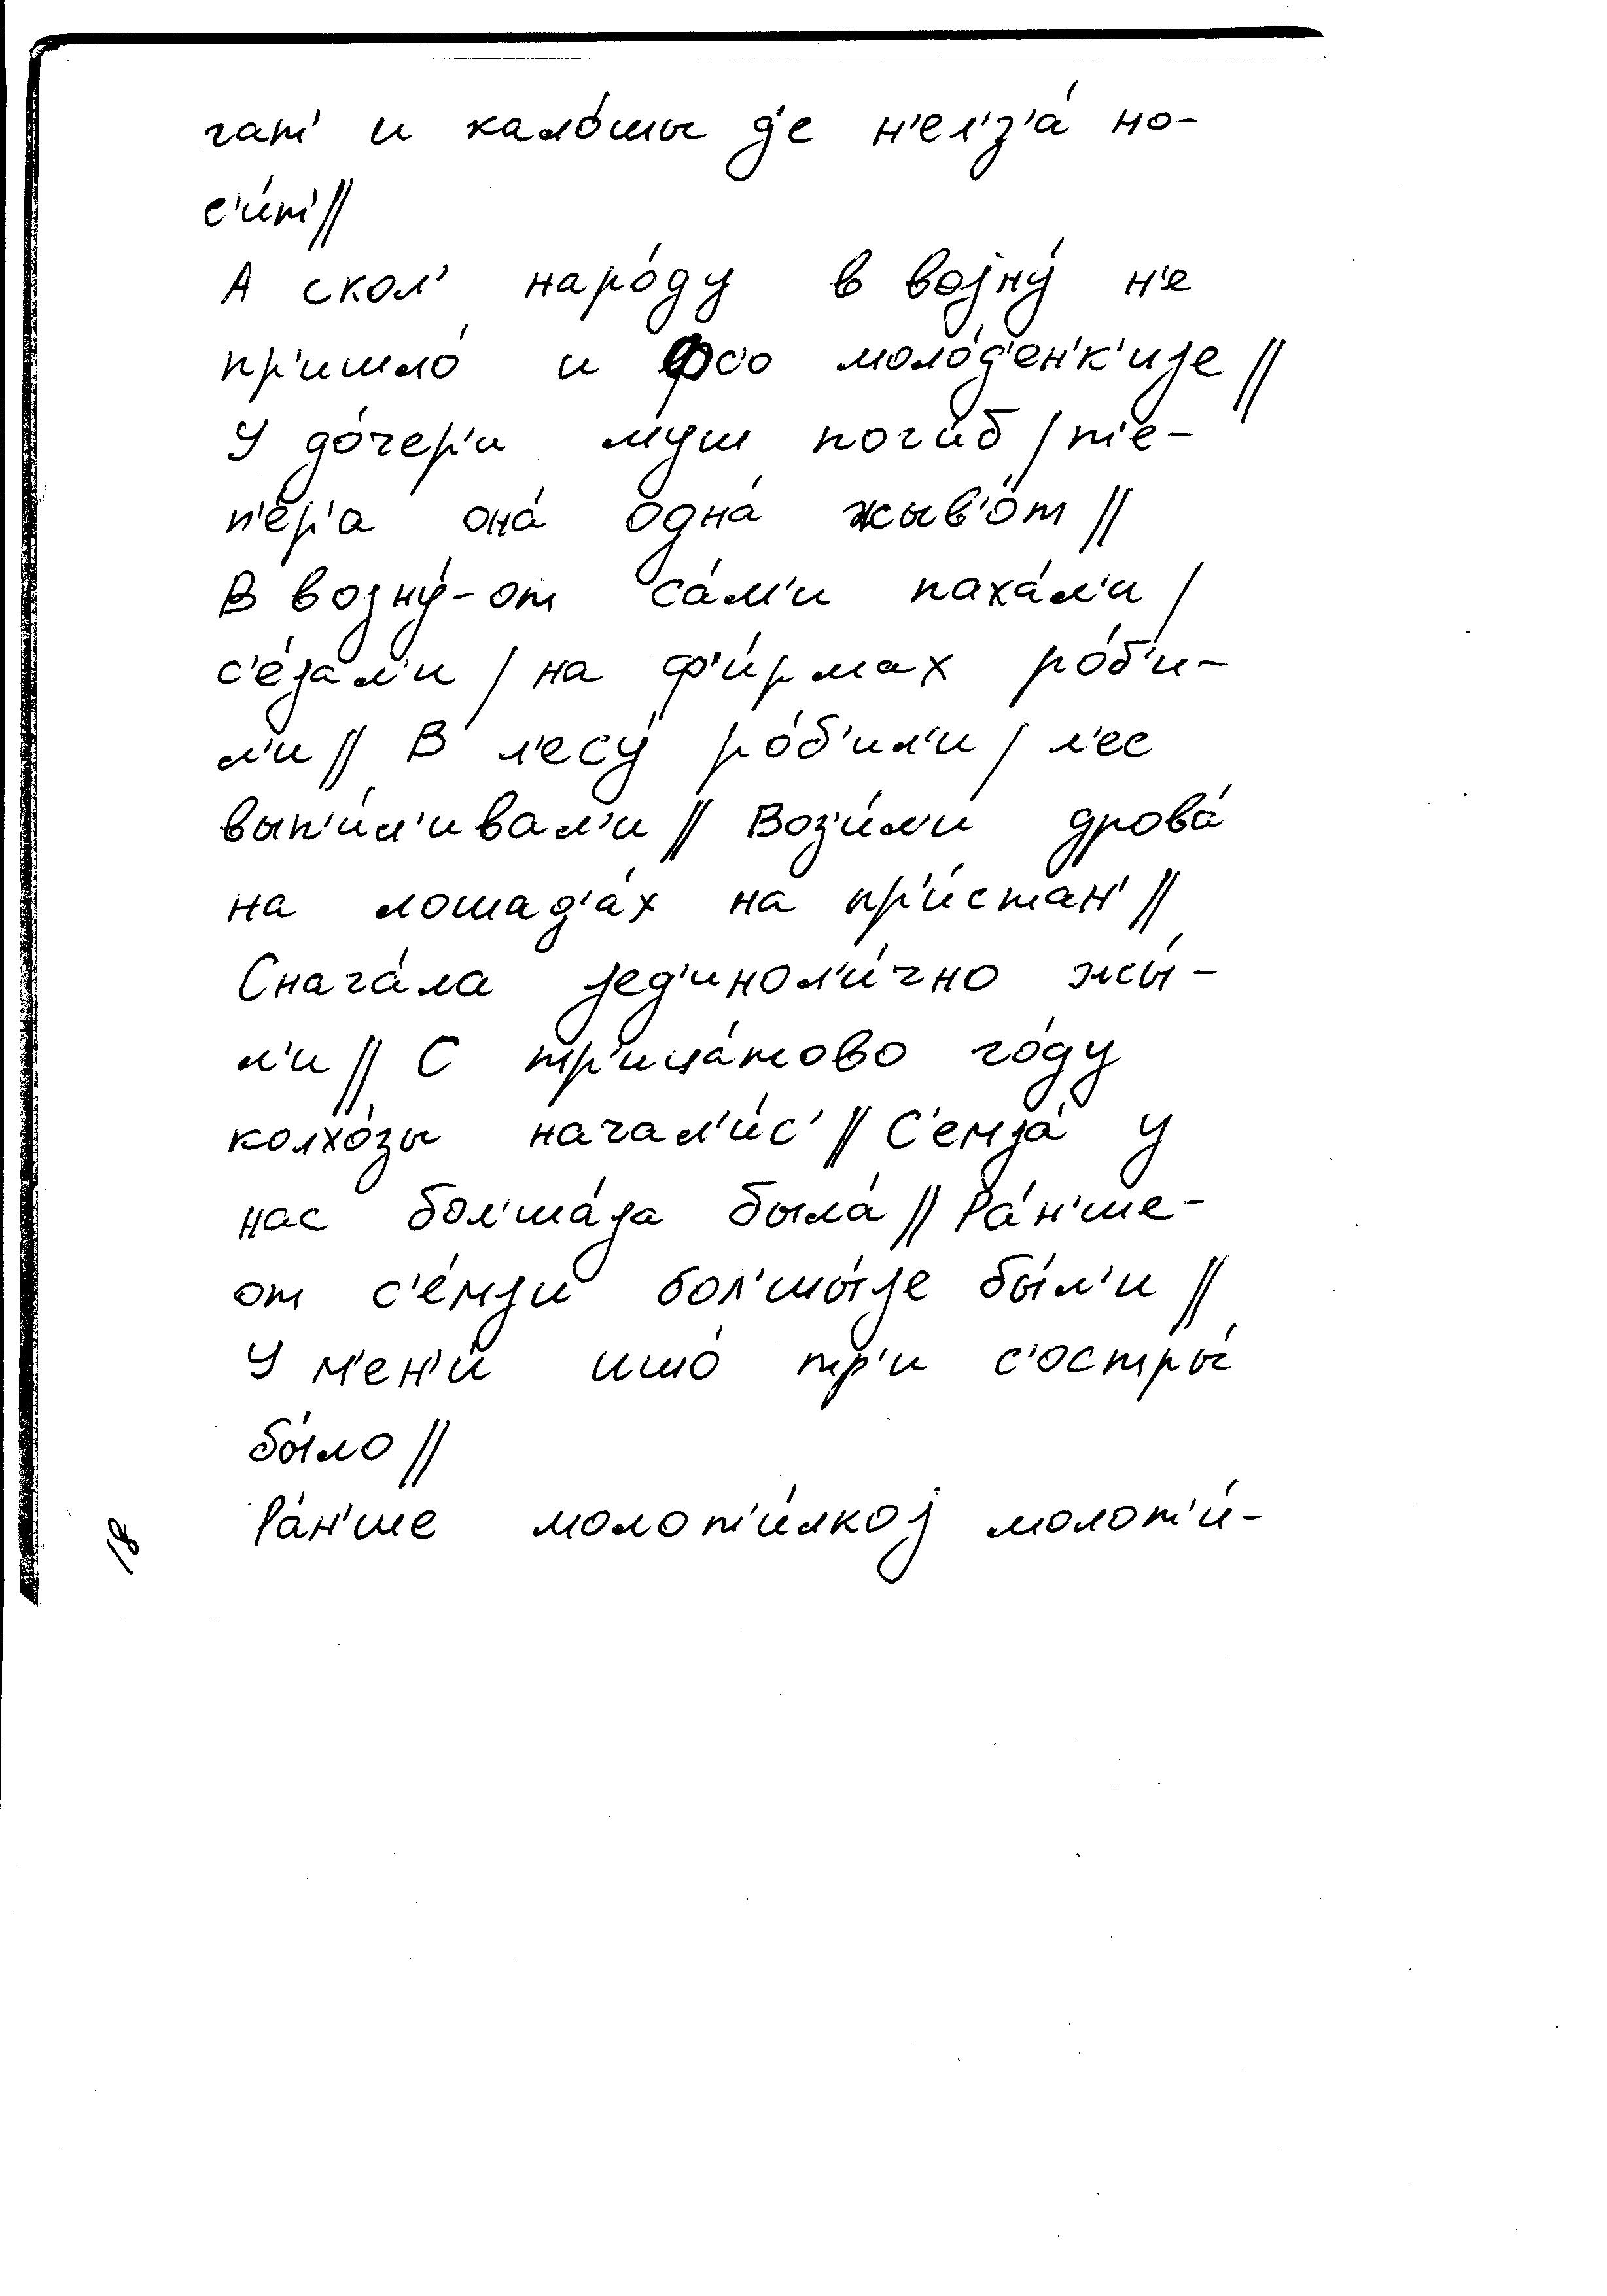 гат' и кало́шы д'е н'ел'з'а́ но-
с'и́т' //
А скол' наро́ду в војну́ н'е
пр'ишло́ и фс'о моло́д'ен'к'ије //
У до́чер'и муш поги́б / т'е-
п'е́р'а она́ одна́ жыв'о́т //
В војну́-от са́м'и паха́л'и /
с'е́јал'и / на ф'и́рмах ро́б'и-
л'и // В л'есу́ ро́б'ил'и / л'ес
вып'и́л'ивал'и // Воз'и́л'и дрова́
на лошад'а́х на пр'и́стан' //
Снача́ла јед'инол'и́чно жы́-
л'и // С тр'ица́тово го́ду
колхо́зы начал'и́с' // С'емја́ у
нас бол'ша́ја была́ // Ра́н'ше-
от с'е́мји бол'шы́је бы́л'и //
У м'ен'и́ ишо́ тр'и с'остры́
бы́ло //
Ра́н'ше молот'и́лкој молот'и́-
18